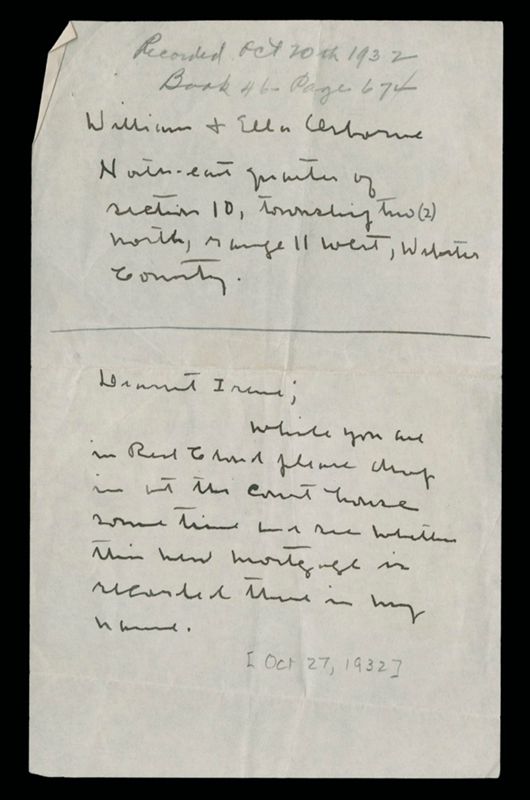 Recorded Oct 20th 1932
Book 46 Page 674
William & Ella Osborne
North-east quarter of
section 10, township two (2)
north, range 11 west, Webster
County.
Dearest Irene;
While you are
in Red Cloud please drop
in at the court house
some time and see whether
this new mortgage is
recorded there in my
name.
[Oct 27, 1932]